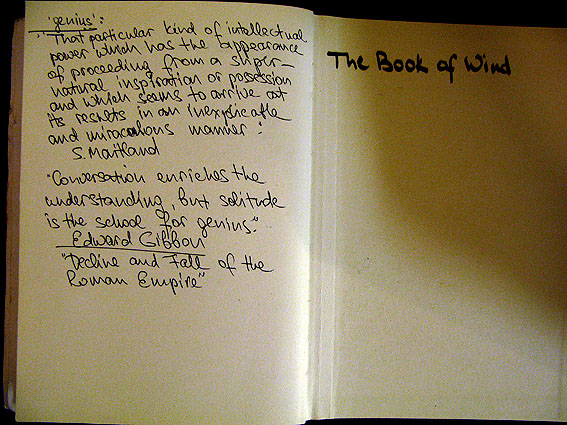 'genius':
'That particular kind of intellectual
power which has the appearance
of proceeding from a super-
natural inspiration or possession
and which seems to arrive at
its results in an inexplicable
and miraculous manner:
S. Maitland
"Conversation enriches the
understanding, but solitude
is the school for genius."
Edward Gibbon
"Decline and Fall of the
Roman Empire"
The Book of Wind